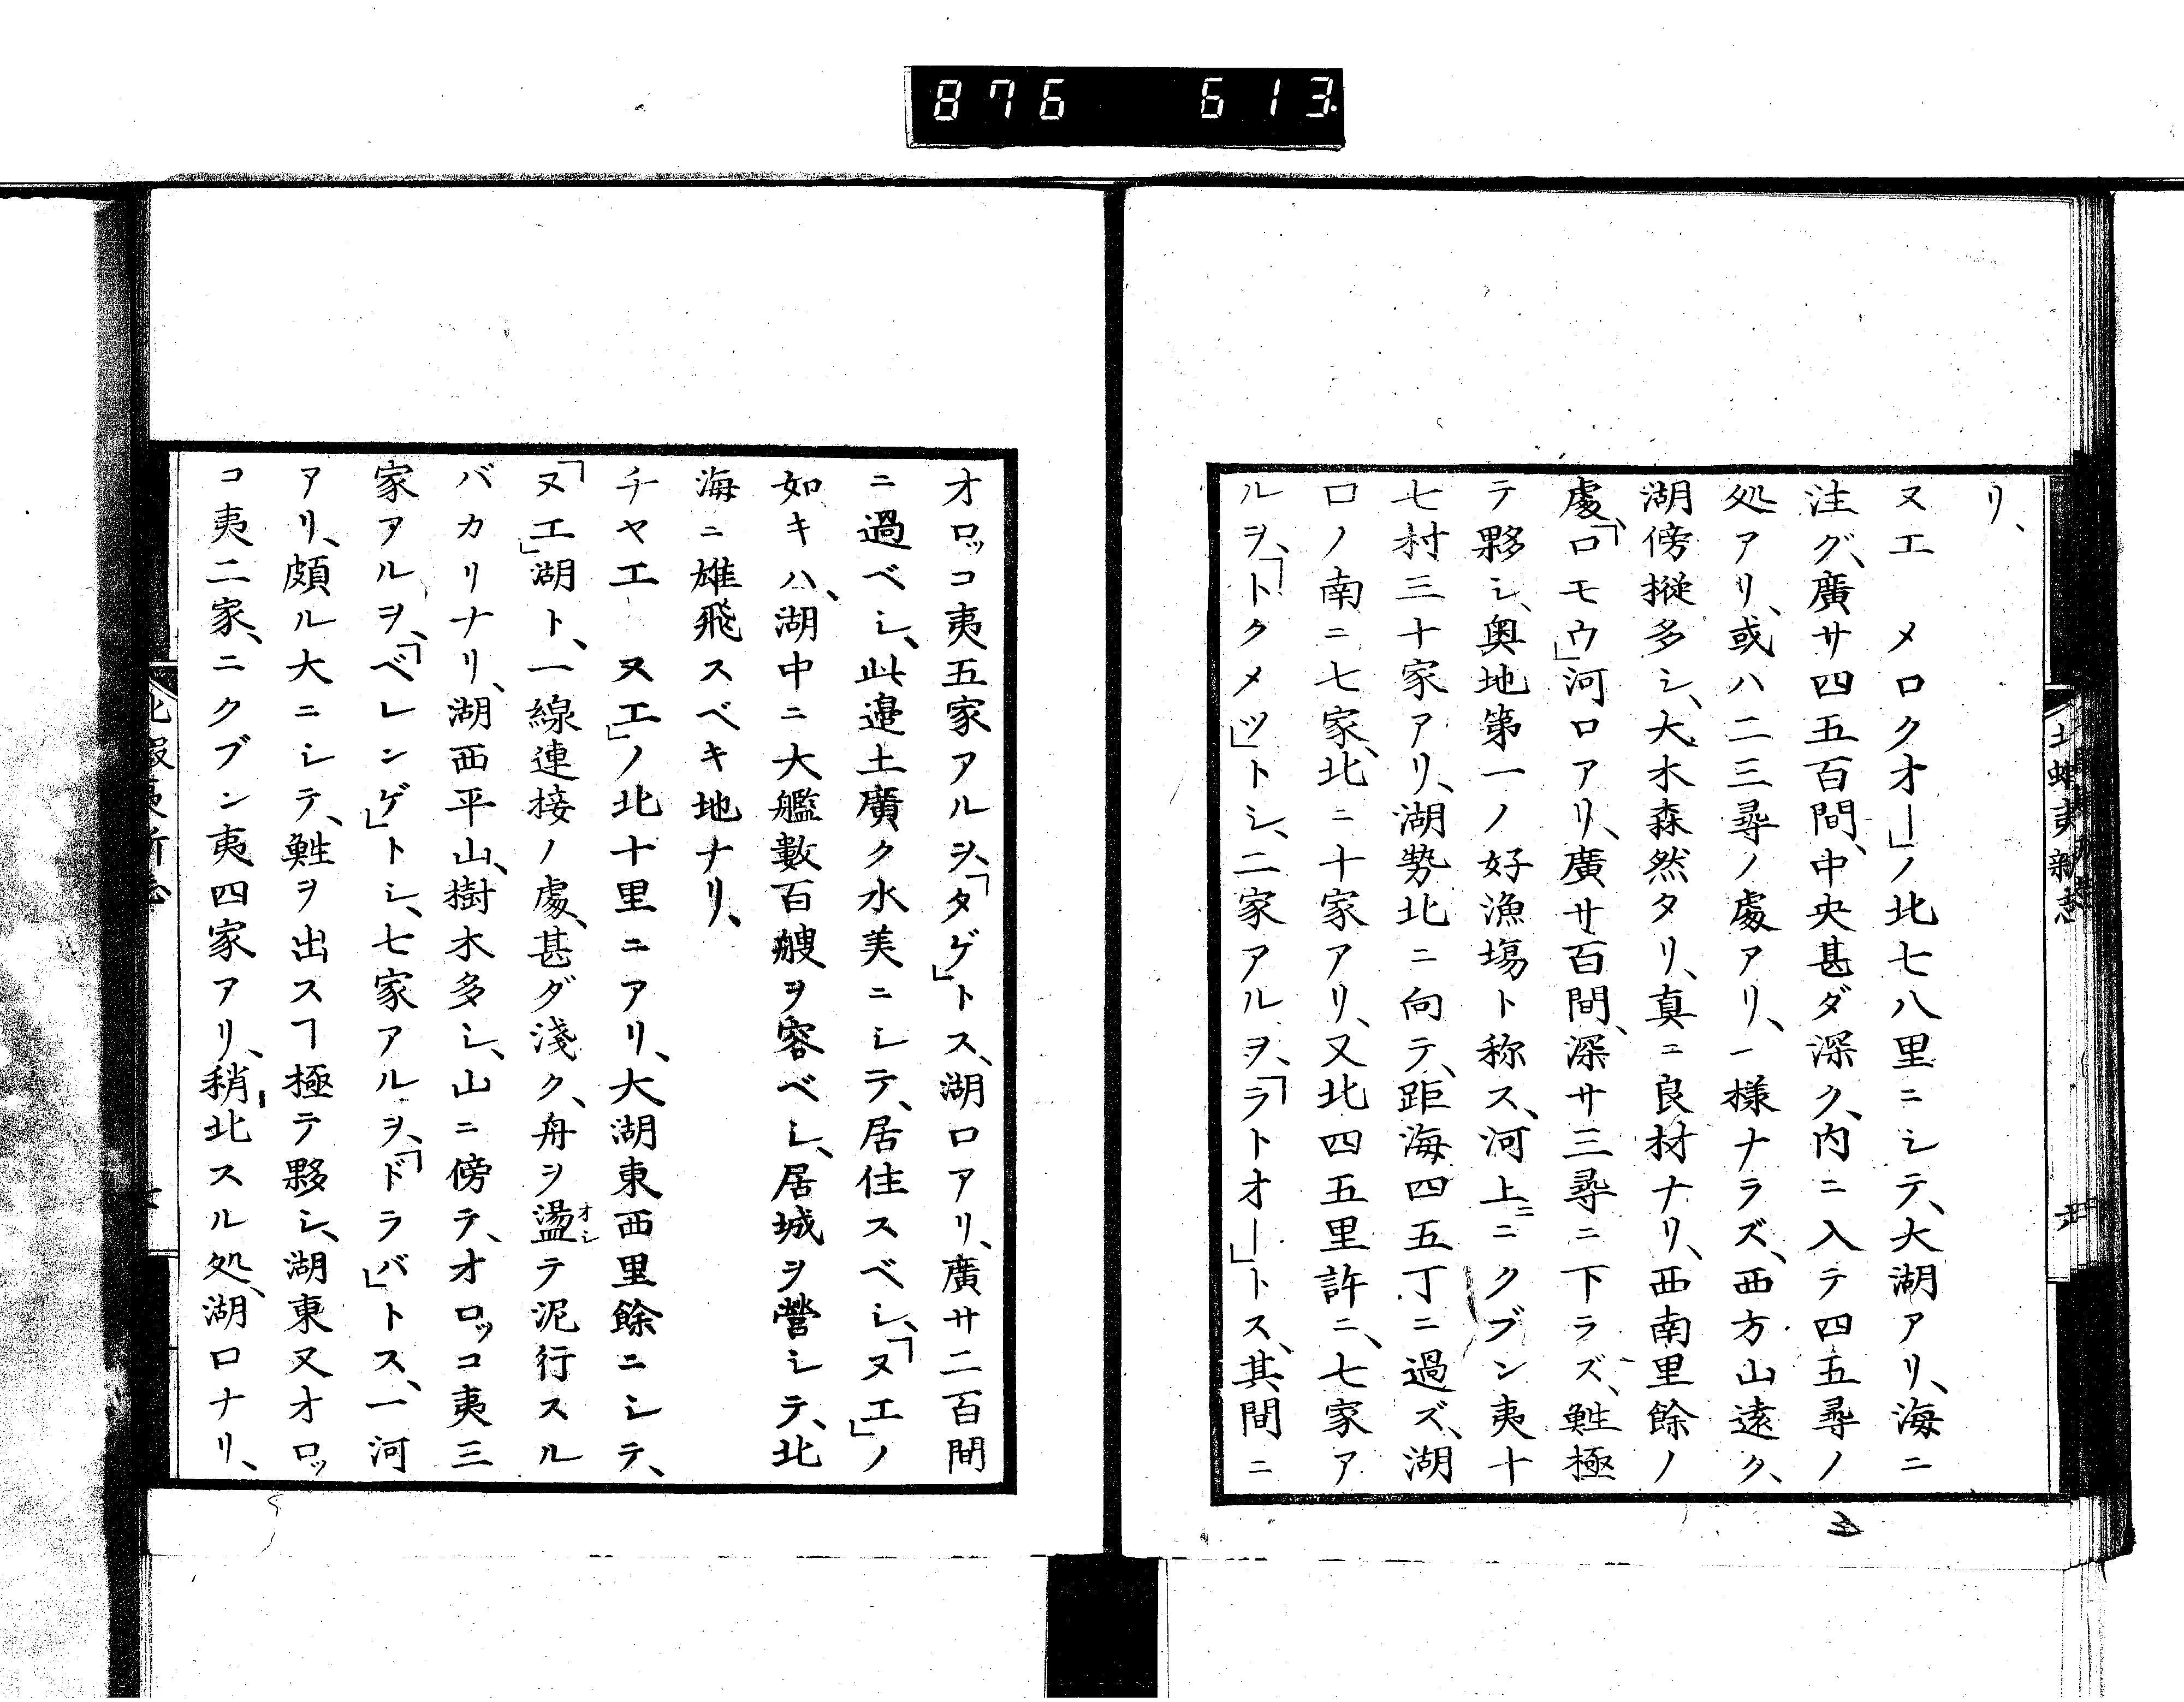 876 613
リ、
ヌエ メロクオー」ノ北七八里ニシテ、大湖アリ、海ニ
注グ、廣サ四五百間、中央甚ダ深ク、内ニ入テ四五尋ノ
処アリ、或ハ二三尋ノ處アリ、一様ナラズ、西方山遠ク、
湖傍樅多シ、大木森然タリ、真ニ良材ナリ、西南里餘ノ
處、「ロモウ」河口アリ、廣サ百間、深サ三尋ニ下ラズ、鮏極
テ夥シ、奥地第一ノ好漁塲ト称ス、河上ニニクブン夷十
七村三十家アリ、湖勢北ニ向テ、距海四五丁ニ過ズ、湖
口ノ南ニ七家、北ニ十家アリ、又北四五里許ニ、七家ア
ルヲ、「トクメッ」トシ、二家アルヲ、「ラトオー」トス、其間ニ
オロッコ夷五家アルヲ、「タゲ」トス、湖口アリ、廣サ二百間
ニ過ベシ、此邉土廣ク水美ニシテ、居住スベシ、「ヌエ」ノ
如キハ、湖中ニ大艦數百艘ヲ容ベシ、居城ヲ營シテ、北
海ニ雄飛スベキ地ナリ、
チヤエ ヌエ」ノ北十里ニアリ、大湖東西里餘ニシテ、
「ヌエ」湖ト、一線連接ノ處、甚ダ淺ク、舟ヲ盪オシテ泥行スル
バカリナリ、湖西平山、樹木多シ、山ニ傍テ、オロッコ夷三
家アルヲ、「ベレンゲ」トシ、七家アルヲ、「ドラバ」トス、一河
アリ、頗ル大ニシテ、鮏ヲ出スヿ極テ夥シ、湖東又オロッ
コ夷二家、ニクブン夷四家アリ、稍北スル処、湖口ナリ、